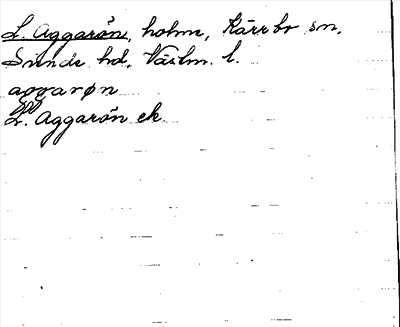 L. Aggarön, holme, Kärrbo sn,
Siende hd, Västm. l.
aggarøn
L. Aggarön ek